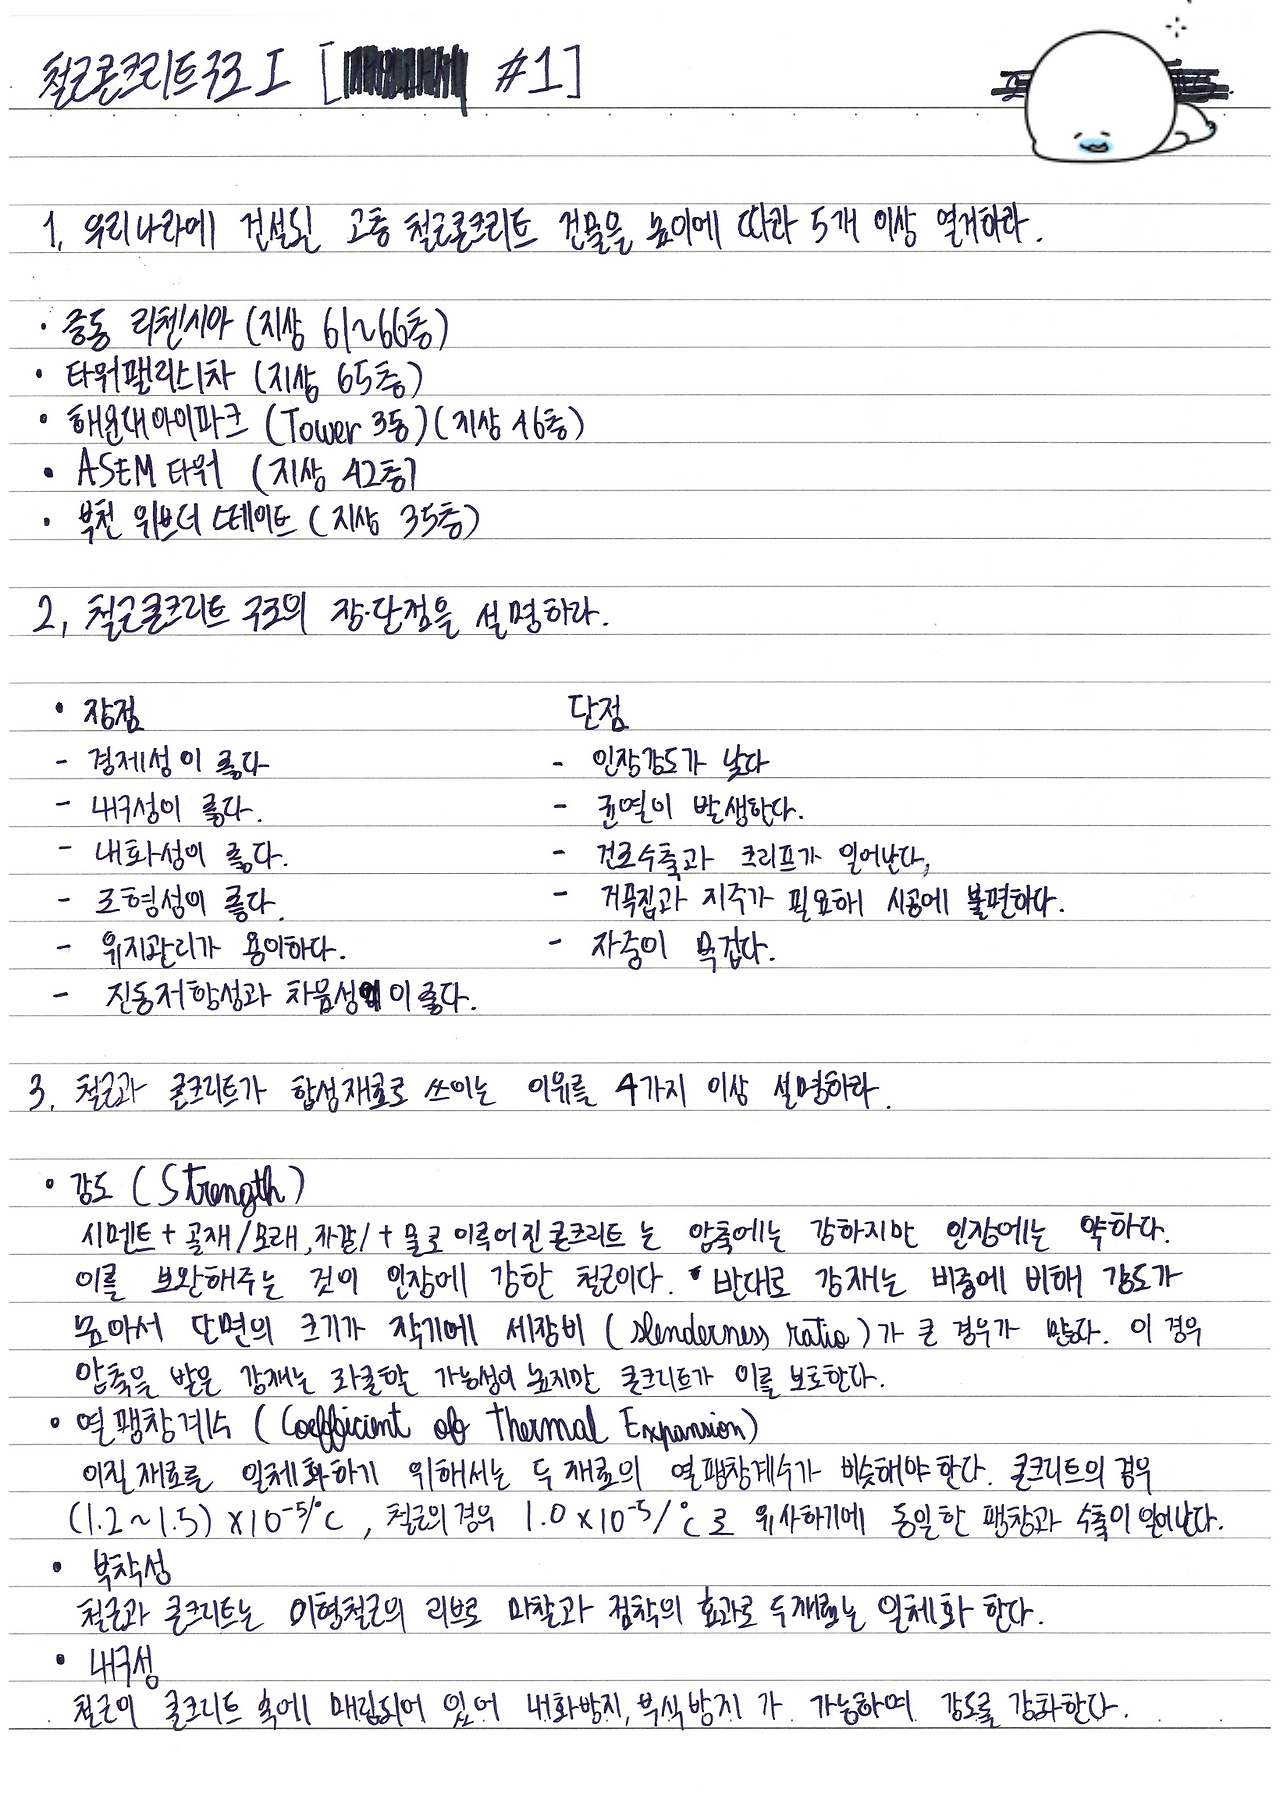 철근콘크리트구조 I [ #1]
1. 우리나라에 건설된 고층 철근콘크리트 건물을 높이에 따라 5개 이상 열거하라.
· 중동 리첸시아 (지상 61~66층)
· 타워팰리스1차 (지상 65층)
· 해운대아이파크 (Tower 3동) (지상 46층)
· ASEM 타워 (지상 42층)
· 부천 위브더 스테이트 (지상 35층)
2. 철근콘크리트 구조의 장·단점을 설명하라.
· 장점 단점
- 경제성이 좋다 - 인장강도가 낮다
- 내구성이 좋다. - 균열이 발생한다.
- 내화성이 좋다. - 건조수축과 크리프가 일어난다,
- 조형성이 좋다. - 거푸집과 지주가 필요해 시공에 불편하다.
- 유지관리가 용이하다. - 자중이 무겁다.
- 진동저항성과 차음성이 좋다.
3. 철근과 콘크리트가 합성재료로 쓰이는 이유를 4가지 이상 설명하라.
· 강도 (Strength)
시멘트 + 골재/모래, 자갈/ + 물로 이루어진 콘크리트는 압축에는 강하지만 인장에는 약하다.
이를 보완해주는 것이 인장에 강한 철근이다. 반대로 강재는 비중에 비해 강도가
높아서 단면의 크기가 작기에 세장비 (slenderness ratio)가 큰 경우가 많다. 이 경우
압축을 받은 강재는 좌굴할 가능성이 높지만 콘크리트가 이를 보호한다.
· 열팽창계수 (Coefficient of Thermal Expansion)
이질재료를 일체화하기 위해서는 두 재료의 열팽창계수가 비슷해야 한다. 콘크리트의 경우
(1.2~1.5)×10⁻⁵/℃, 철근의 경우 1.0×10⁻⁵/℃로 유사하기에 동일한 팽창과 수축이 일어난다.
· 부착성
철근과 콘크리트는 이형철근의 리브로 마찰과 점착의 효과로 두재료는 일체화 한다.
· 내구성
철근이 콘크리트 속에 매립되어 있어 내화방지, 부식방지가 가능하며 강도를 강화한다.